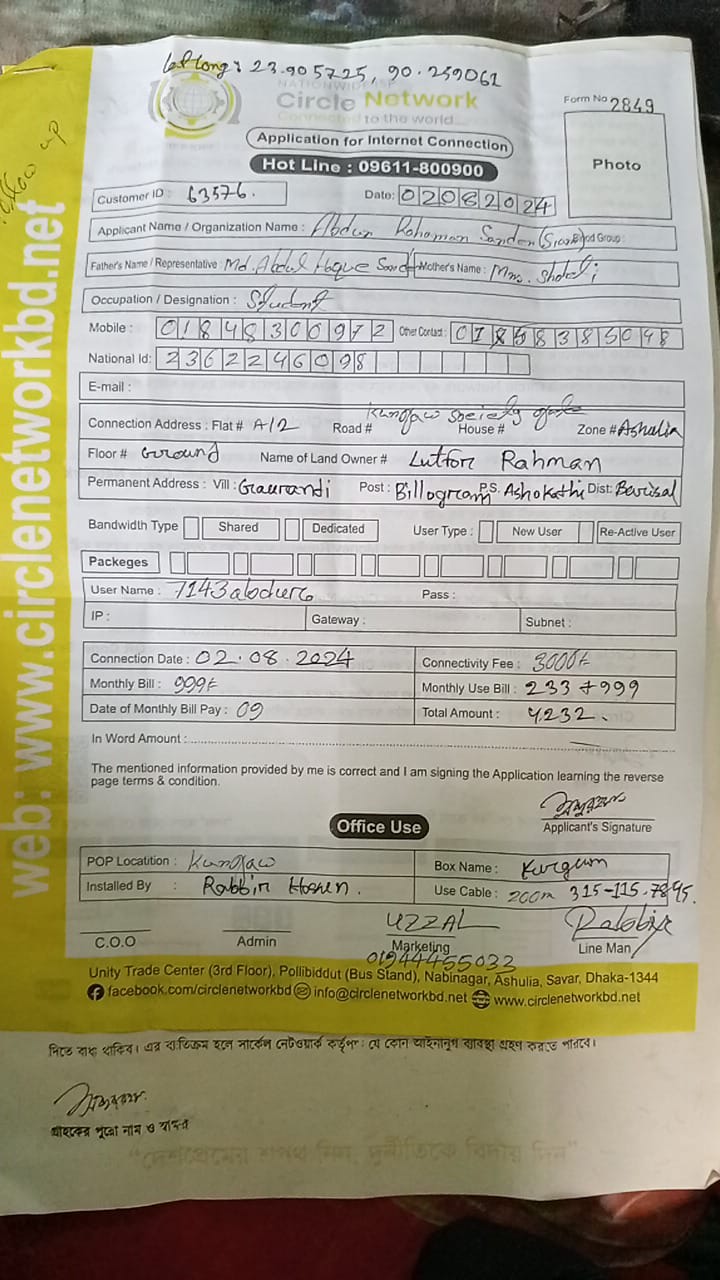 Lat long: 23.905725, 90.259061
NATIONWIDE ISP
Circle Network
Connected to the world...
Form No 2849
Application for Internet Connection
Hot Line : 09611-800900
Photo
Customer ID : 63576.
Date: 02082024
Applicant Name / Organization Name : Abdur Rahaman Sardar Blood Group:
Father's Name / Representative : Md. Abdul Haque Mother's Name : Mrs.
Occupation / Designation : Student
Mobile : 01848300972 Other Contact :
National Id: 2362246098
E-mail :
society gate
Connection Address : Flat# A/2 Road # House # Zone # Ashulia
Floor # Ground Name of Land Owner # Lutfor Rahman
Permanent Address : Vill : Gaurandi Post : Billogram P.S. Ashokathi Dist: Barisal
Bandwidth Type Shared Dedicated User Type : New User Re-Active User
Packeges
User Name : Pass :
IP : Gateway : Subnet :
Connection Date : 02.08.2024 Connectivity Fee : 3000/-
Monthly Bill : 999/- Monthly Use Bill : 233+999
Date of Monthly Bill Pay : 09 Total Amount : 4232.
In Word Amount :
The mentioned information provided by me is correct and I am signing the Application learning the reverse
page terms & condition.
Applicant's Signature
Office Use
POP Locatition : Box Name :
Installed By : Rabbir Hosen. Use Cable : 200m
UZZAL
C.O.O Admin Marketing Line Man
01944455033
Unity Trade Center (3rd Floor), Pollibiddut (Bus Stand), Nabinagar, Ashulia, Savar, Dhaka-1344
facebook.com/circlenetworkbd info@circlenetworkbd.net www.circlenetworkbd.net
web: www.circlenetworkbd.net
দিতে বাধ্য থাকিব। এর ব্যতিক্রম হলে সার্কেল নেটওয়ার্ক কর্তৃপক্ষ যে কোন আইনানুগ ব্যবস্থা গ্রহণ করতে পারবে।
গ্রাহকের পুরো নাম ও স্বাক্ষর
"দেশপ্রেমের শপথ নিন, দুর্নীতিকে বিদায় দিন"